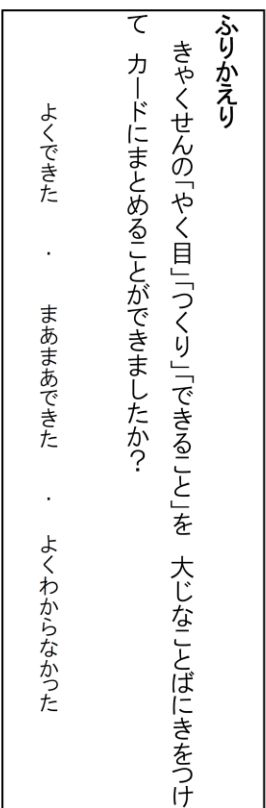 ふりかえり
きゃくせんの「やく目」「つくり」「できること」を　大じなことばにきをつけ
て　カードにまとめることができましたか？
よくできた　・　まあまあできた　・　よくわからなかった